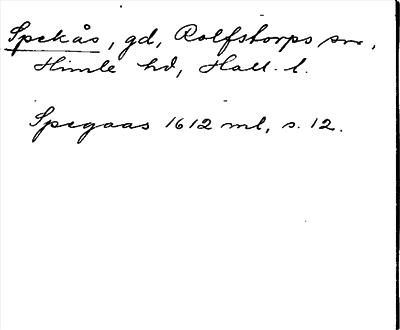 Spekås, gd, Rolfstorps sn,
Himle hd, Hall. l.
Spegaas 1612 ml, s. 12.